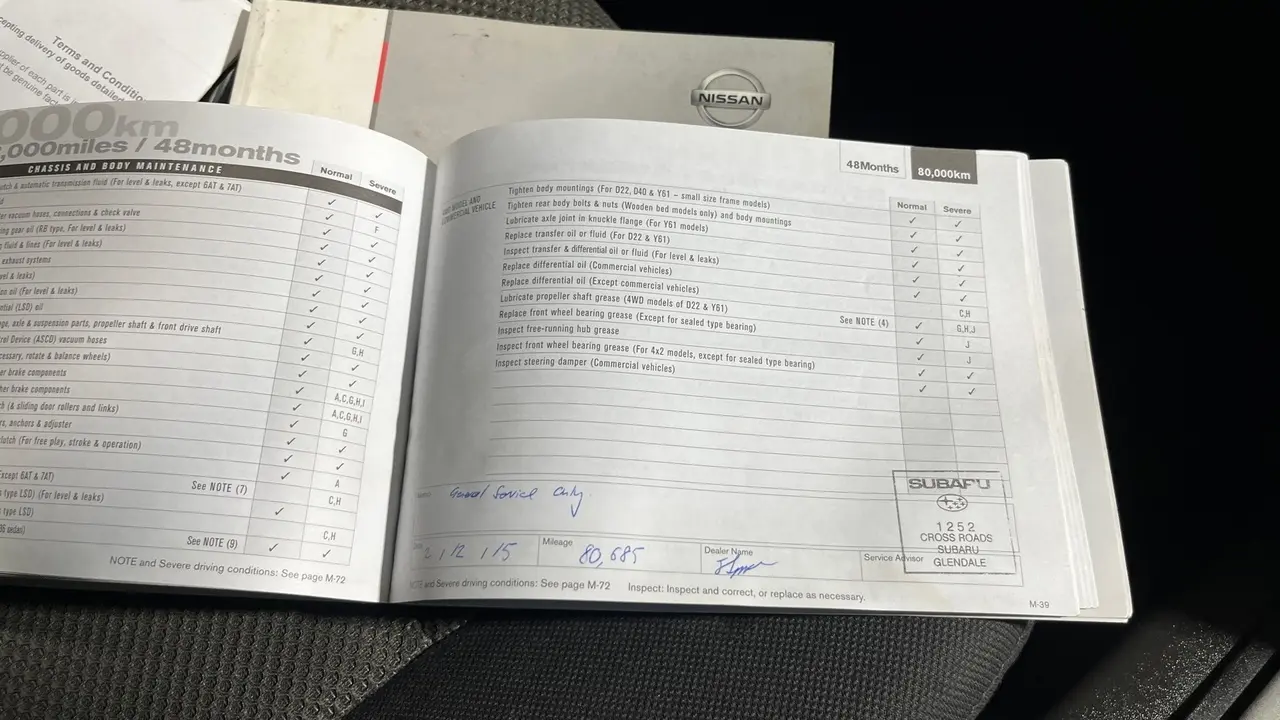 Terms and Conditio
cepting delivery of goods detailed
pplier of each part is
t be genuine fact
NISSAN
000km
,000miles / 48months
CHASSIS AND BODY MAINTENANCE
Normal
Severe
utch & automatic transmission fluid (For level & leaks, except 6AT & 7AT)
✓ ✓
er vacuum hoses, connections & check valve
✓ F
ing gear oil (RB type, For level & leaks)
✓ ✓
g fluid & lines (For level & leaks)
✓ ✓
exhaust systems
✓ ✓
vel & leaks)
✓ ✓
on oil (For level & leaks)
✓ ✓
ntial (LSD) oil
✓ ✓
ngs, axle & suspension parts, propeller shaft & front drive shaft
✓ G,H
trol Device (ASCD) vacuum hoses
✓ ✓
cessary, rotate & balance wheels)
✓ ✓
er brake components
✓ A,C,G,H,I
her brake components
✓ A,C,G,H,I
ch (& sliding door rollers and links)
✓ G
rs, anchors & adjuster
✓ ✓
clutch (For free play, stroke & operation)
✓ ✓
Except 6AT & 7AT)
See NOTE (7)
✓ A
s type LSD) (For level & leaks)
C,H
s type LSD)
✓
36 sedan)
See NOTE (9)
C,H
✓ ✓
NOTE and Severe driving conditions: See page M-72
48Months
80,000km
Normal
Severe
MODEL AND
COMMERCIAL VEHICLE
Tighten body mountings (For D22, D40 & Y61 – small size frame models)
✓ ✓
Tighten rear body bolts & nuts (Wooden bed models only) and body mountings
✓ ✓
Lubricate axle joint in knuckle flange (For Y61 models)
✓ ✓
Replace transfer oil or fluid (For D22 & Y61)
✓ ✓
Inspect transfer & differential oil or fluid (For level & leaks)
✓ ✓
Replace differential oil (Commercial vehicles)
✓ ✓
Replace differential oil (Except commercial vehicles)
C,H
Lubricate propeller shaft grease (4WD models of D22 & Y61)
See NOTE (4)
✓ G,H,J
Replace front wheel bearing grease (Except for sealed type bearing)
✓ J
Inspect free-running hub grease
✓ J
Inspect front wheel bearing grease (For 4x2 models, except for sealed type bearing)
✓ ✓
Inspect steering damper (Commercial vehicles)
✓ ✓
General Service Only
2 / 12 / 15
Mileage
80,685
Dealer Name
Service Advisor
SUBARU
1252
CROSS ROADS
SUBARU
GLENDALE
NOTE and Severe driving conditions: See page M-72
Inspect: Inspect and correct, or replace as necessary.
M-39